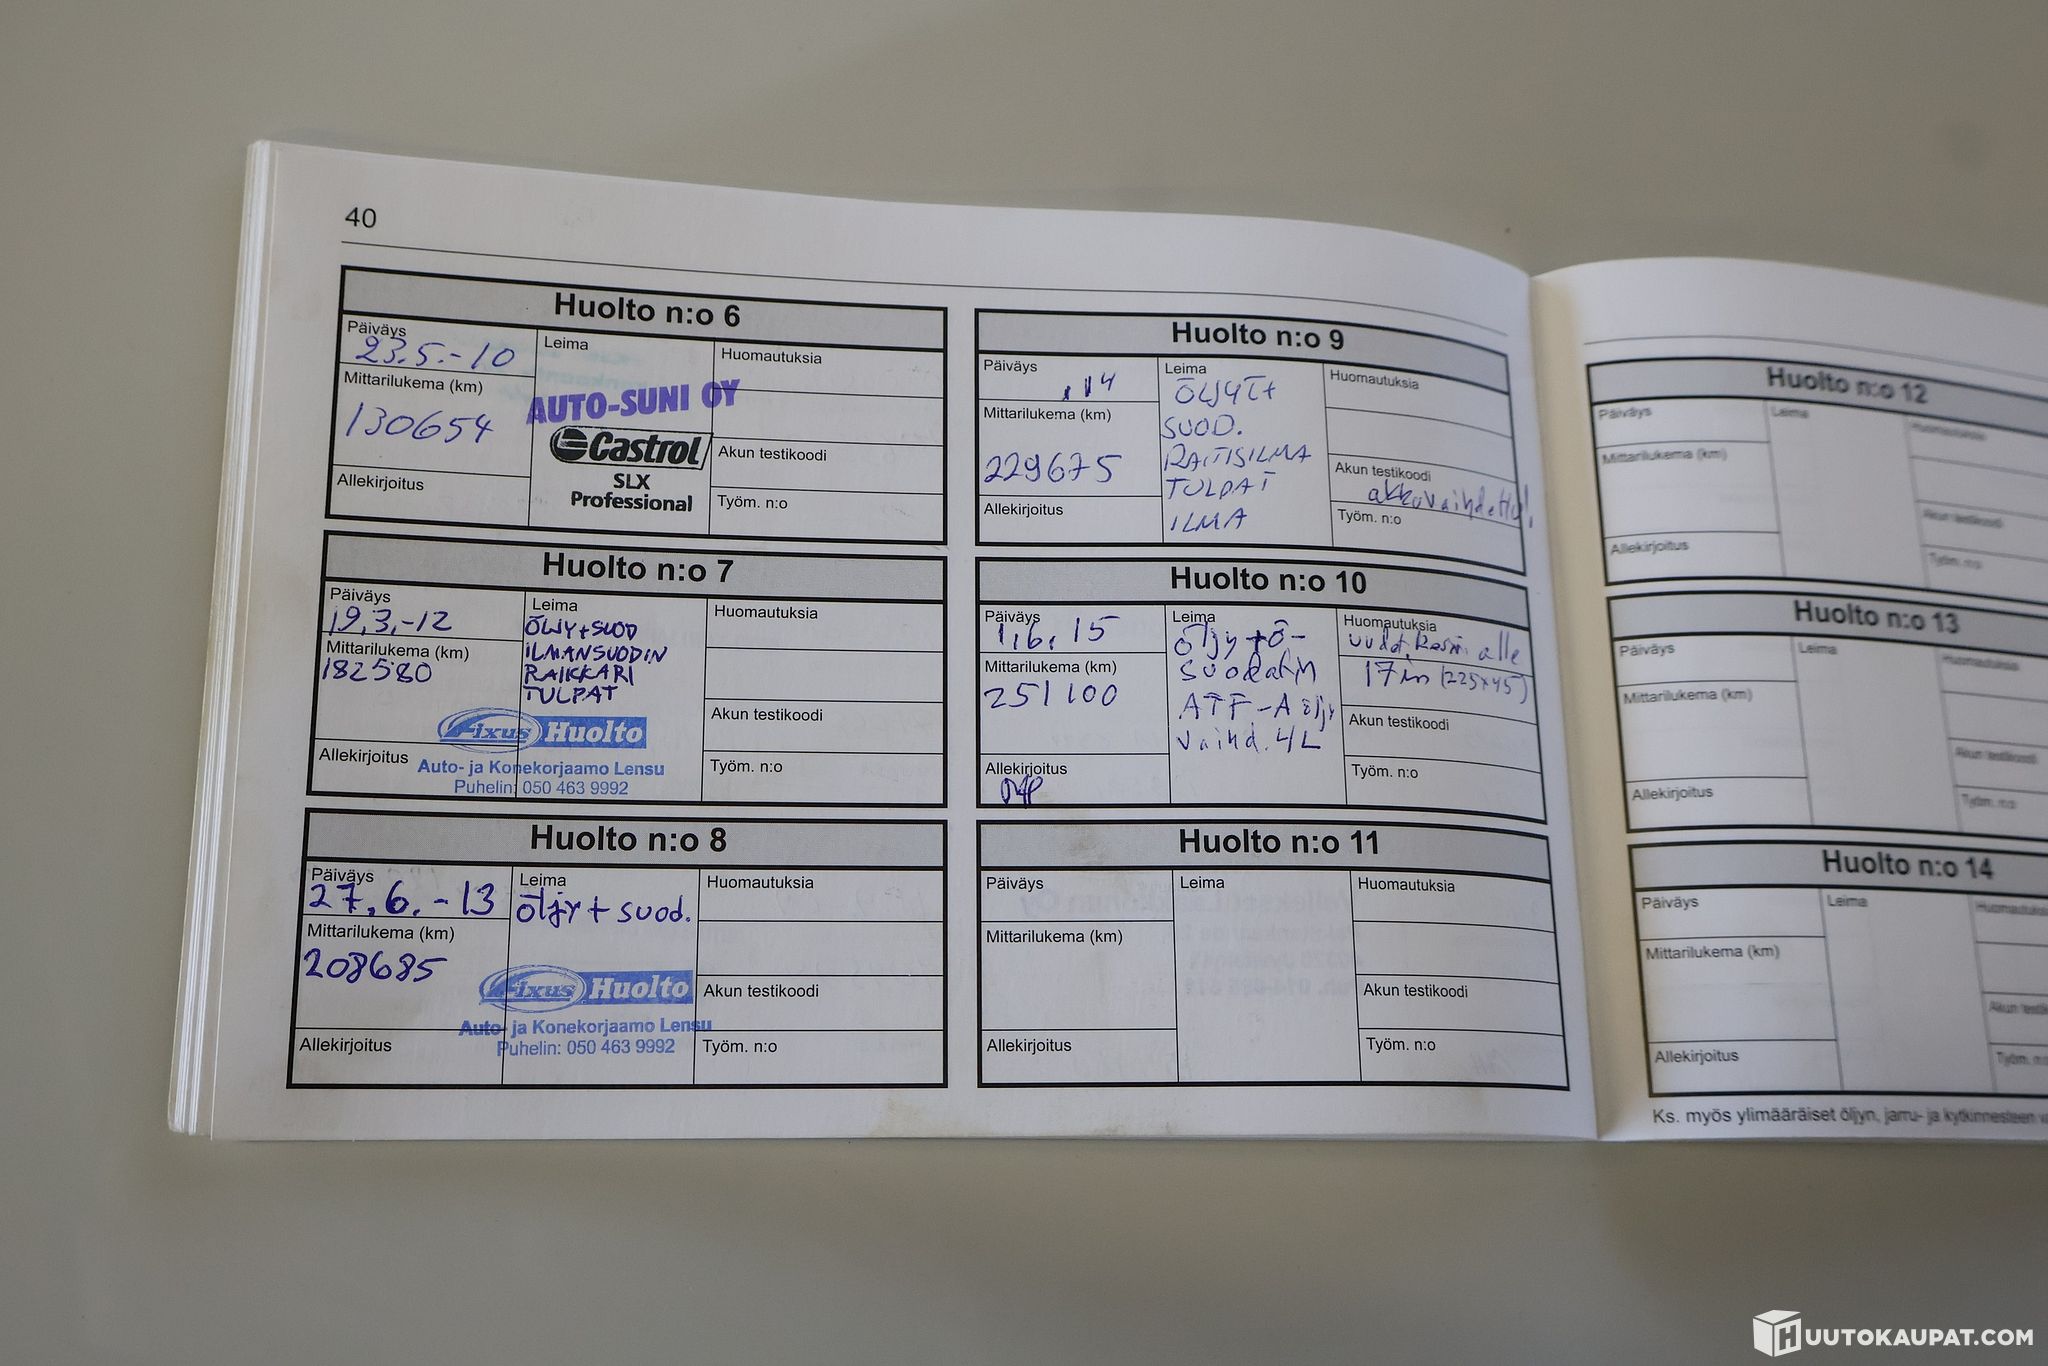 40
Huolto n:o 6
Päiväys
23.5.-10
Mittarilukema (km)
130654
Allekirjoitus
Leima
AUTO-SUNI OY
Castrol
SLX
Professional
Huomautuksia
Akun testikoodi
Työm. n:o
Huolto n:o 7
Päiväys
19.3.-12
Mittarilukema (km)
182580
Allekirjoitus
Leima
ÖLJY+SUOD
ILMANSUODIN
RAIKKARI
TULPAT
Fixus Huolto
Auto- ja Konekorjaamo Lensu
Puhelin: 050 463 9992
Huomautuksia
Akun testikoodi
Työm. n:o
Huolto n:o 8
Päiväys
27.6.-13
Mittarilukema (km)
208685
Allekirjoitus
Leima
öljy + suod.
Fixus Huolto
Auto- ja Konekorjaamo Lensu
Puhelin: 050 463 9992
Huomautuksia
Akun testikoodi
Työm. n:o
Huolto n:o 9
Päiväys
.14
Mittarilukema (km)
229675
Allekirjoitus
Leima
ÖLJYT+
SUOD.
RAITISILMA
TULPAT
ILMA
Huomautuksia
Akun testikoodi
akku vaihdettu.
Työm. n:o
Huolto n:o 10
Päiväys
1.6.15
Mittarilukema (km)
251100
Allekirjoitus
Leima
öljy+ö-
suodatin
ATF-A öljy
vaihd. 4L
Huomautuksia
alle
17in (225x45)
Akun testikoodi
Työm. n:o
Huolto n:o 11
Päiväys
Mittarilukema (km)
Allekirjoitus
Leima
Huomautuksia
Akun testikoodi
Työm. n:o
Huolto n:o 12
Päiväys
Mittarilukema (km)
Allekirjoitus
Leima
Huomautuksia
Akun testikoodi
Työm. n:o
Huolto n:o 13
Päiväys
Mittarilukema (km)
Allekirjoitus
Leima
Huomautuksia
Akun testikoodi
Työm. n:o
Huolto n:o 14
Päiväys
Mittarilukema (km)
Allekirjoitus
Leima
Ks. myös ylimääräiset öljyn, jarru- ja kytkinnesteen
HUUTOKAUPAT.COM